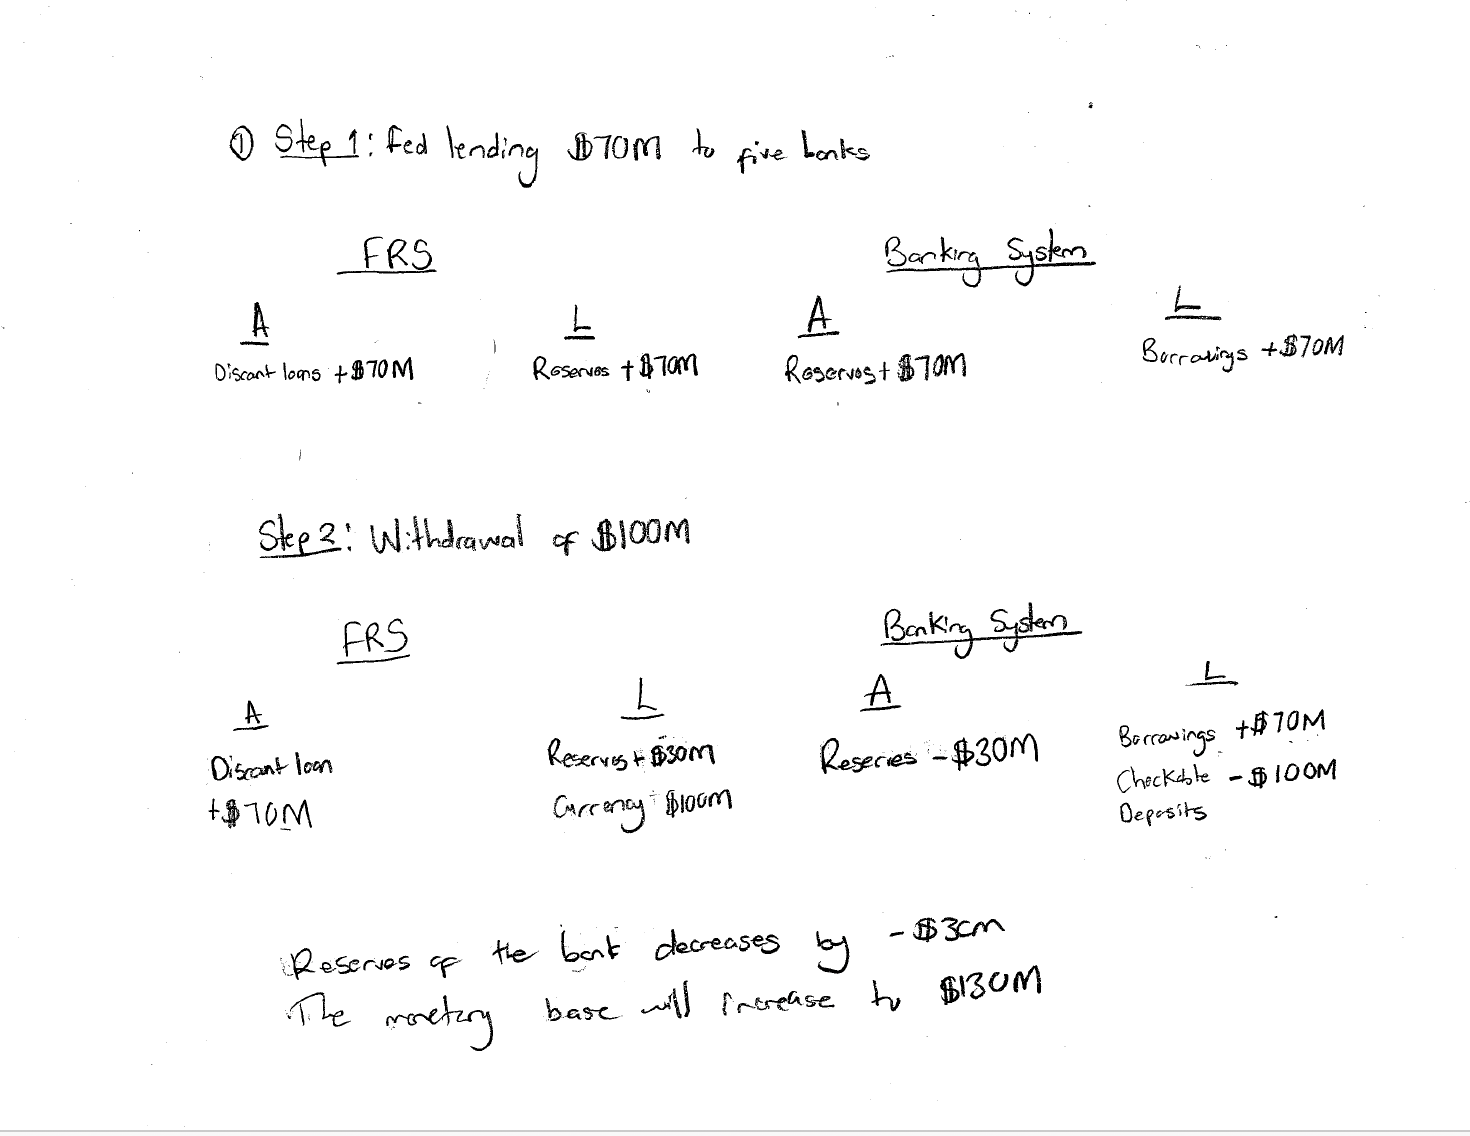 ① Step 1: Fed lending $70M to five banks
FRS
Banking System
A
L
A
L
Discount loans +$70M
Reserves +$70M
Reserves + $70M
Borrowings +$70M
Step 2: Withdrawal of $100M
FRS
Banking System
A
L
A
L
Discount loan
+$70M
Reserves + $30M
Currency + $100M
Reserves -$30M
Borrowings +$70M
Checkable -$100M
Deposits
Reserves of the bank decreases by -$30M
The monetary base will increase to $130M